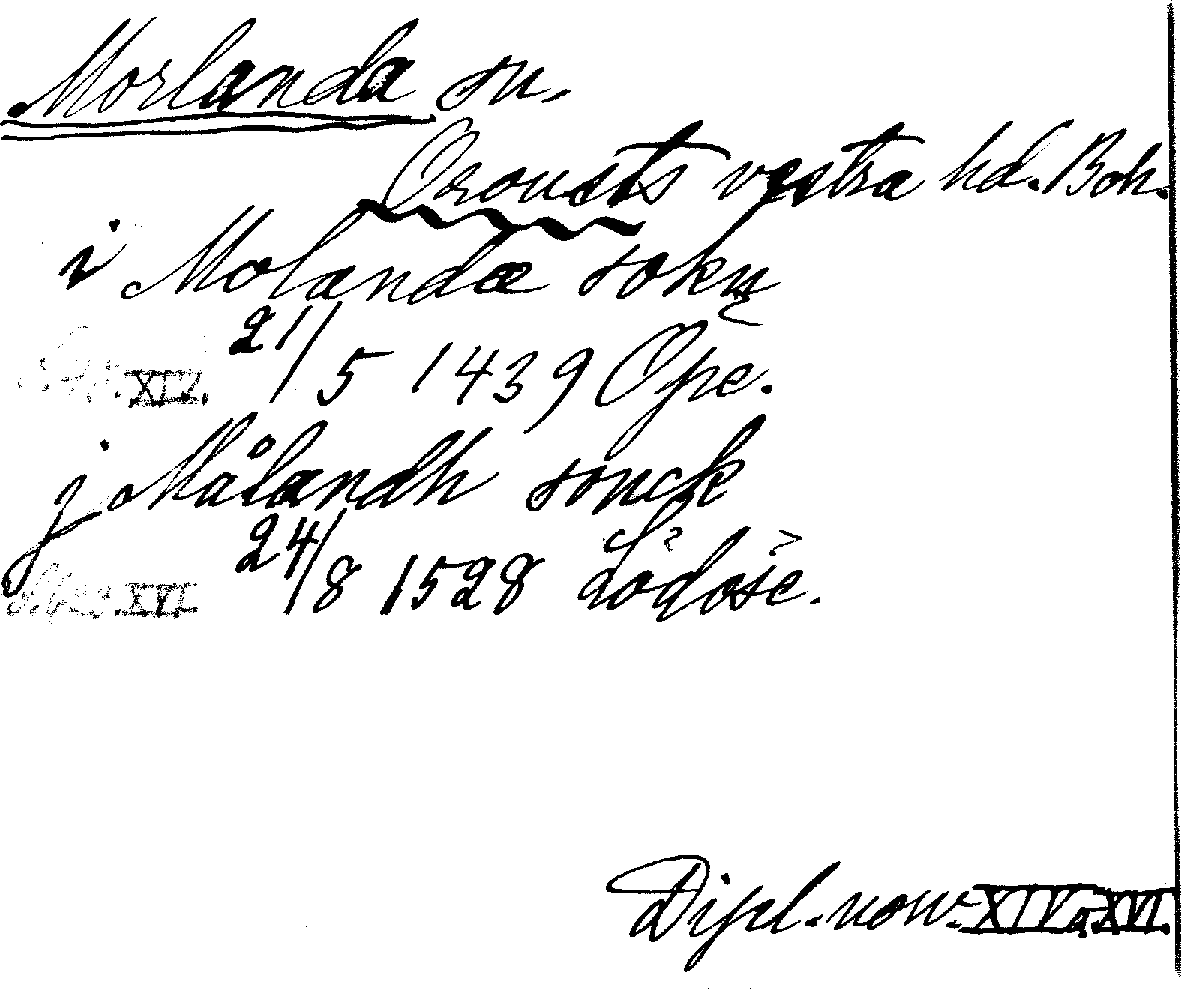 Morlanda sn.
Orousts vestra hd. Boh.
i Molandæ sokn
XIV. 21/5 1439 Ope.
j Målandh sonck
XVI. 24/8 1528 Lödöse.
Dipl. norv. XIV a XVI.